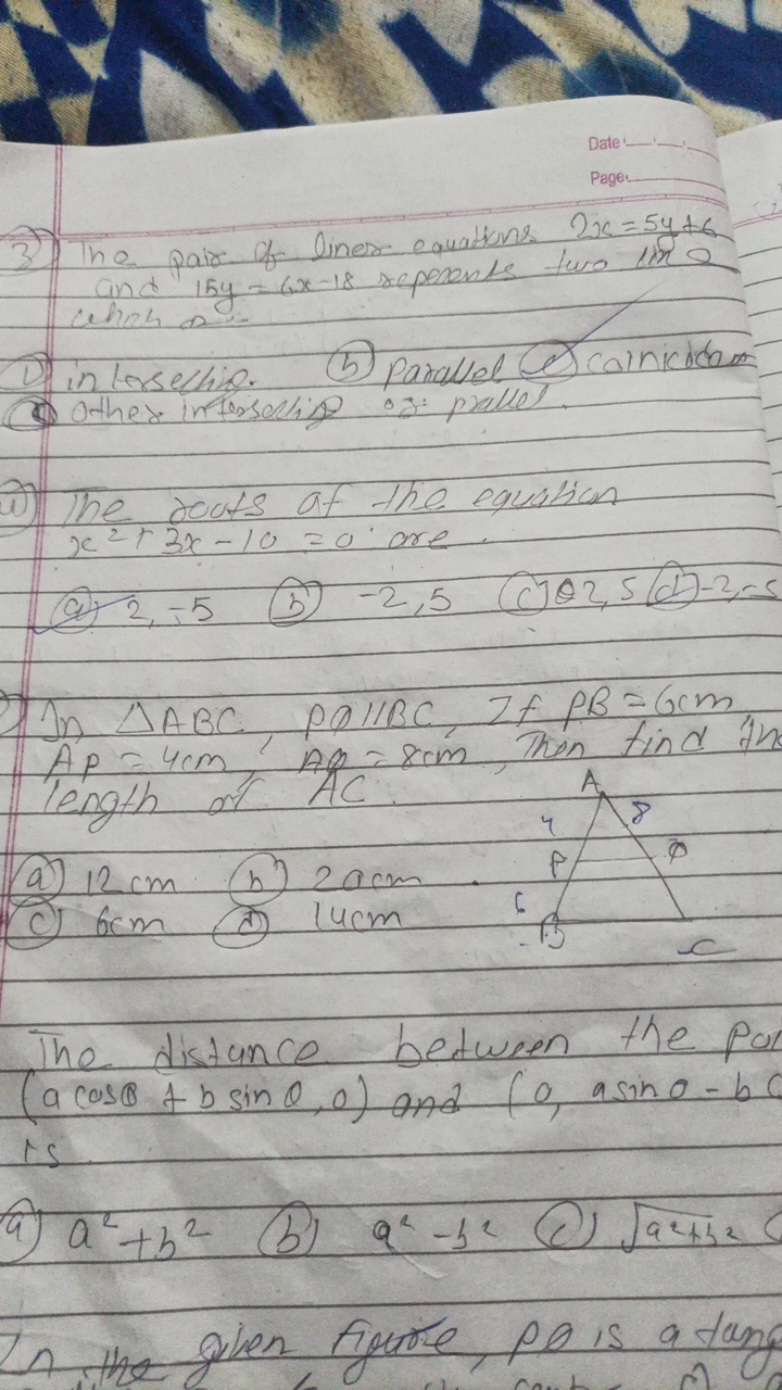 Date
Page
3) The pair of liner equations 2x = 5y + 6
and 15y = 6x - 18 reperents two lin
which
intersecting. (b) Parallel (c)
other intersecting or prallel.
The roots of the equation
x² + 3x - 10 = 0 are
(a) 2, -5 (b) -2, 5 (c) 2, 5 (d) -2, -5
In △ABC, PQ||BC, If PB = 6cm
AP = 4cm, AQ = 8cm, Then find the
length of AC.
A
4 8
(a) 12cm (b) 20cm P Q
(c) 6cm (d) 14cm 6
B C
The distance between the poi
(a cosθ + b sinθ, 0) and (0, a sinθ - b c
is
(a) a² + b² (b) a² - b² (c) √a²+b²
In the given figure, PQ is a tang